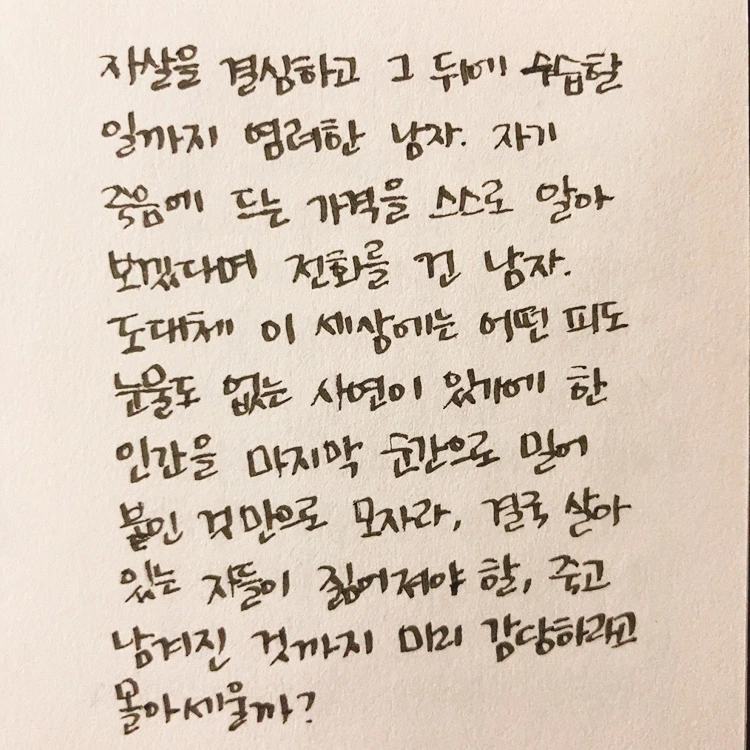 자살을 결심하고 그 뒤에 수습할
일까지 염려한 남자. 자기
죽음에 드는 가격을 스스로 알아
보겠다며 전화를 건 남자.
도대체 이 세상에는 어떤 피도
눈물도 없는 사연이 있기에 한
인간을 마지막 순간으로 밀어
붙인 것만으로 모자라, 결국 살아
있는 자들이 짊어져야 할, 죽고
남겨진 것까지 미리 감당하라고
몰아세울까?